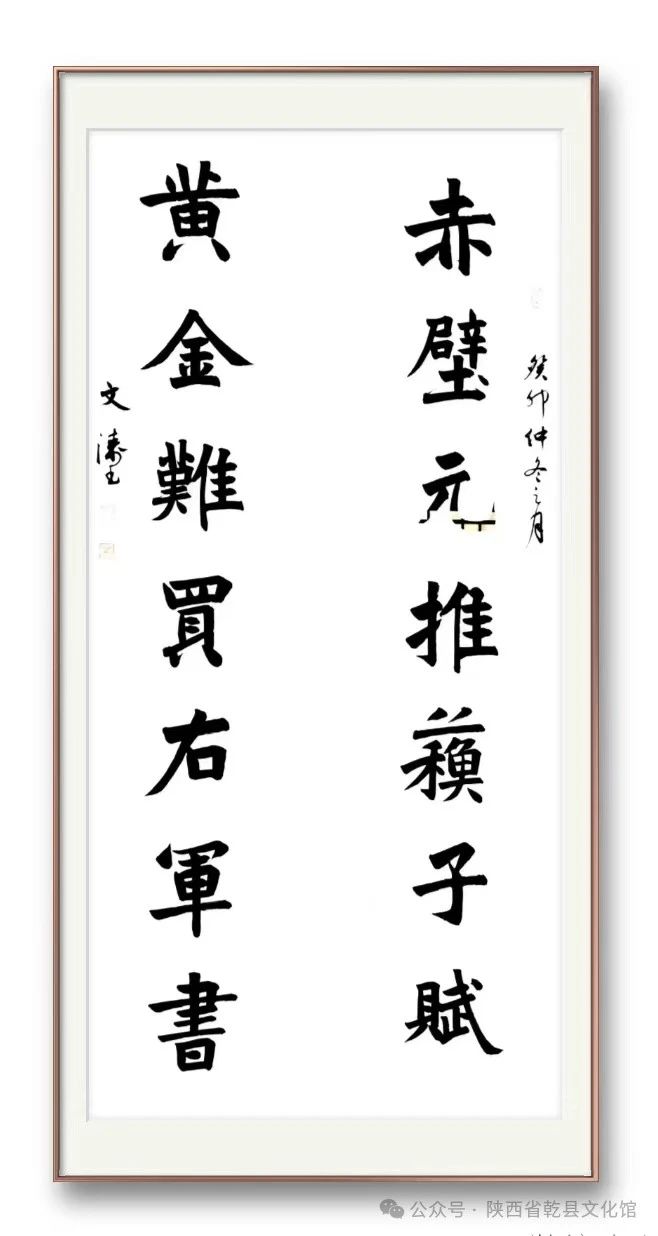 癸卯仲冬之月
赤壁元推蘓子賦
黄金難買右軍書
文
公众号·陕西省乾县文化馆